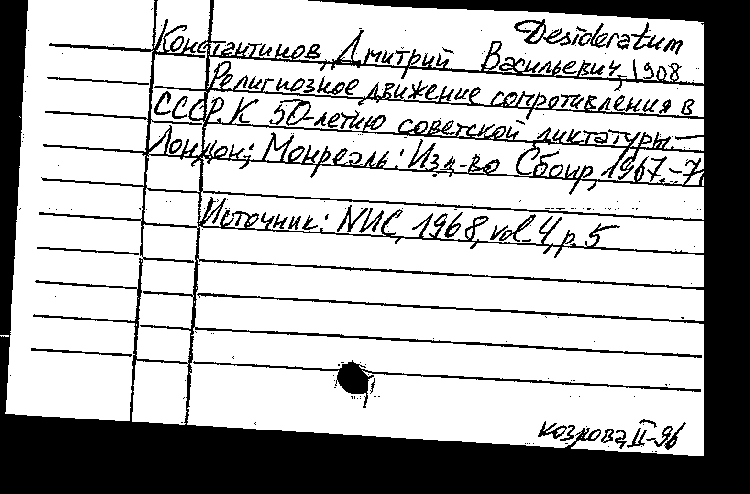 Desideratum
Константинов, Дмитрий Васильевич, 1908
Религиозное движение сопротивления в
СССР. К 50-летию советской диктатуры. —
Лондон; Монреаль: Изд-во Сбонр, 1967. - 71
Источник: NUC, 1968, vol. 4, p. 5
II-96